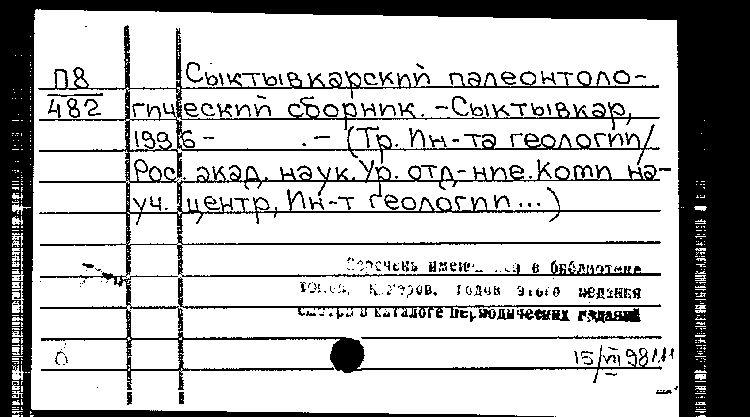 П8 Сыктывкарский палеонтоло-
482 гический сборник. -Сыктывкар,
1996 - . - (Тр. Ин-та геологии/
Рос. акад. наук. Ур. отд-ние. Коми на-
уч. центр, Ин-т геологии...)
Перечень имею в библиотеке
томов, номеров, годов этого издания
смотри в каталоге периодических изданий
б 15/VII 98